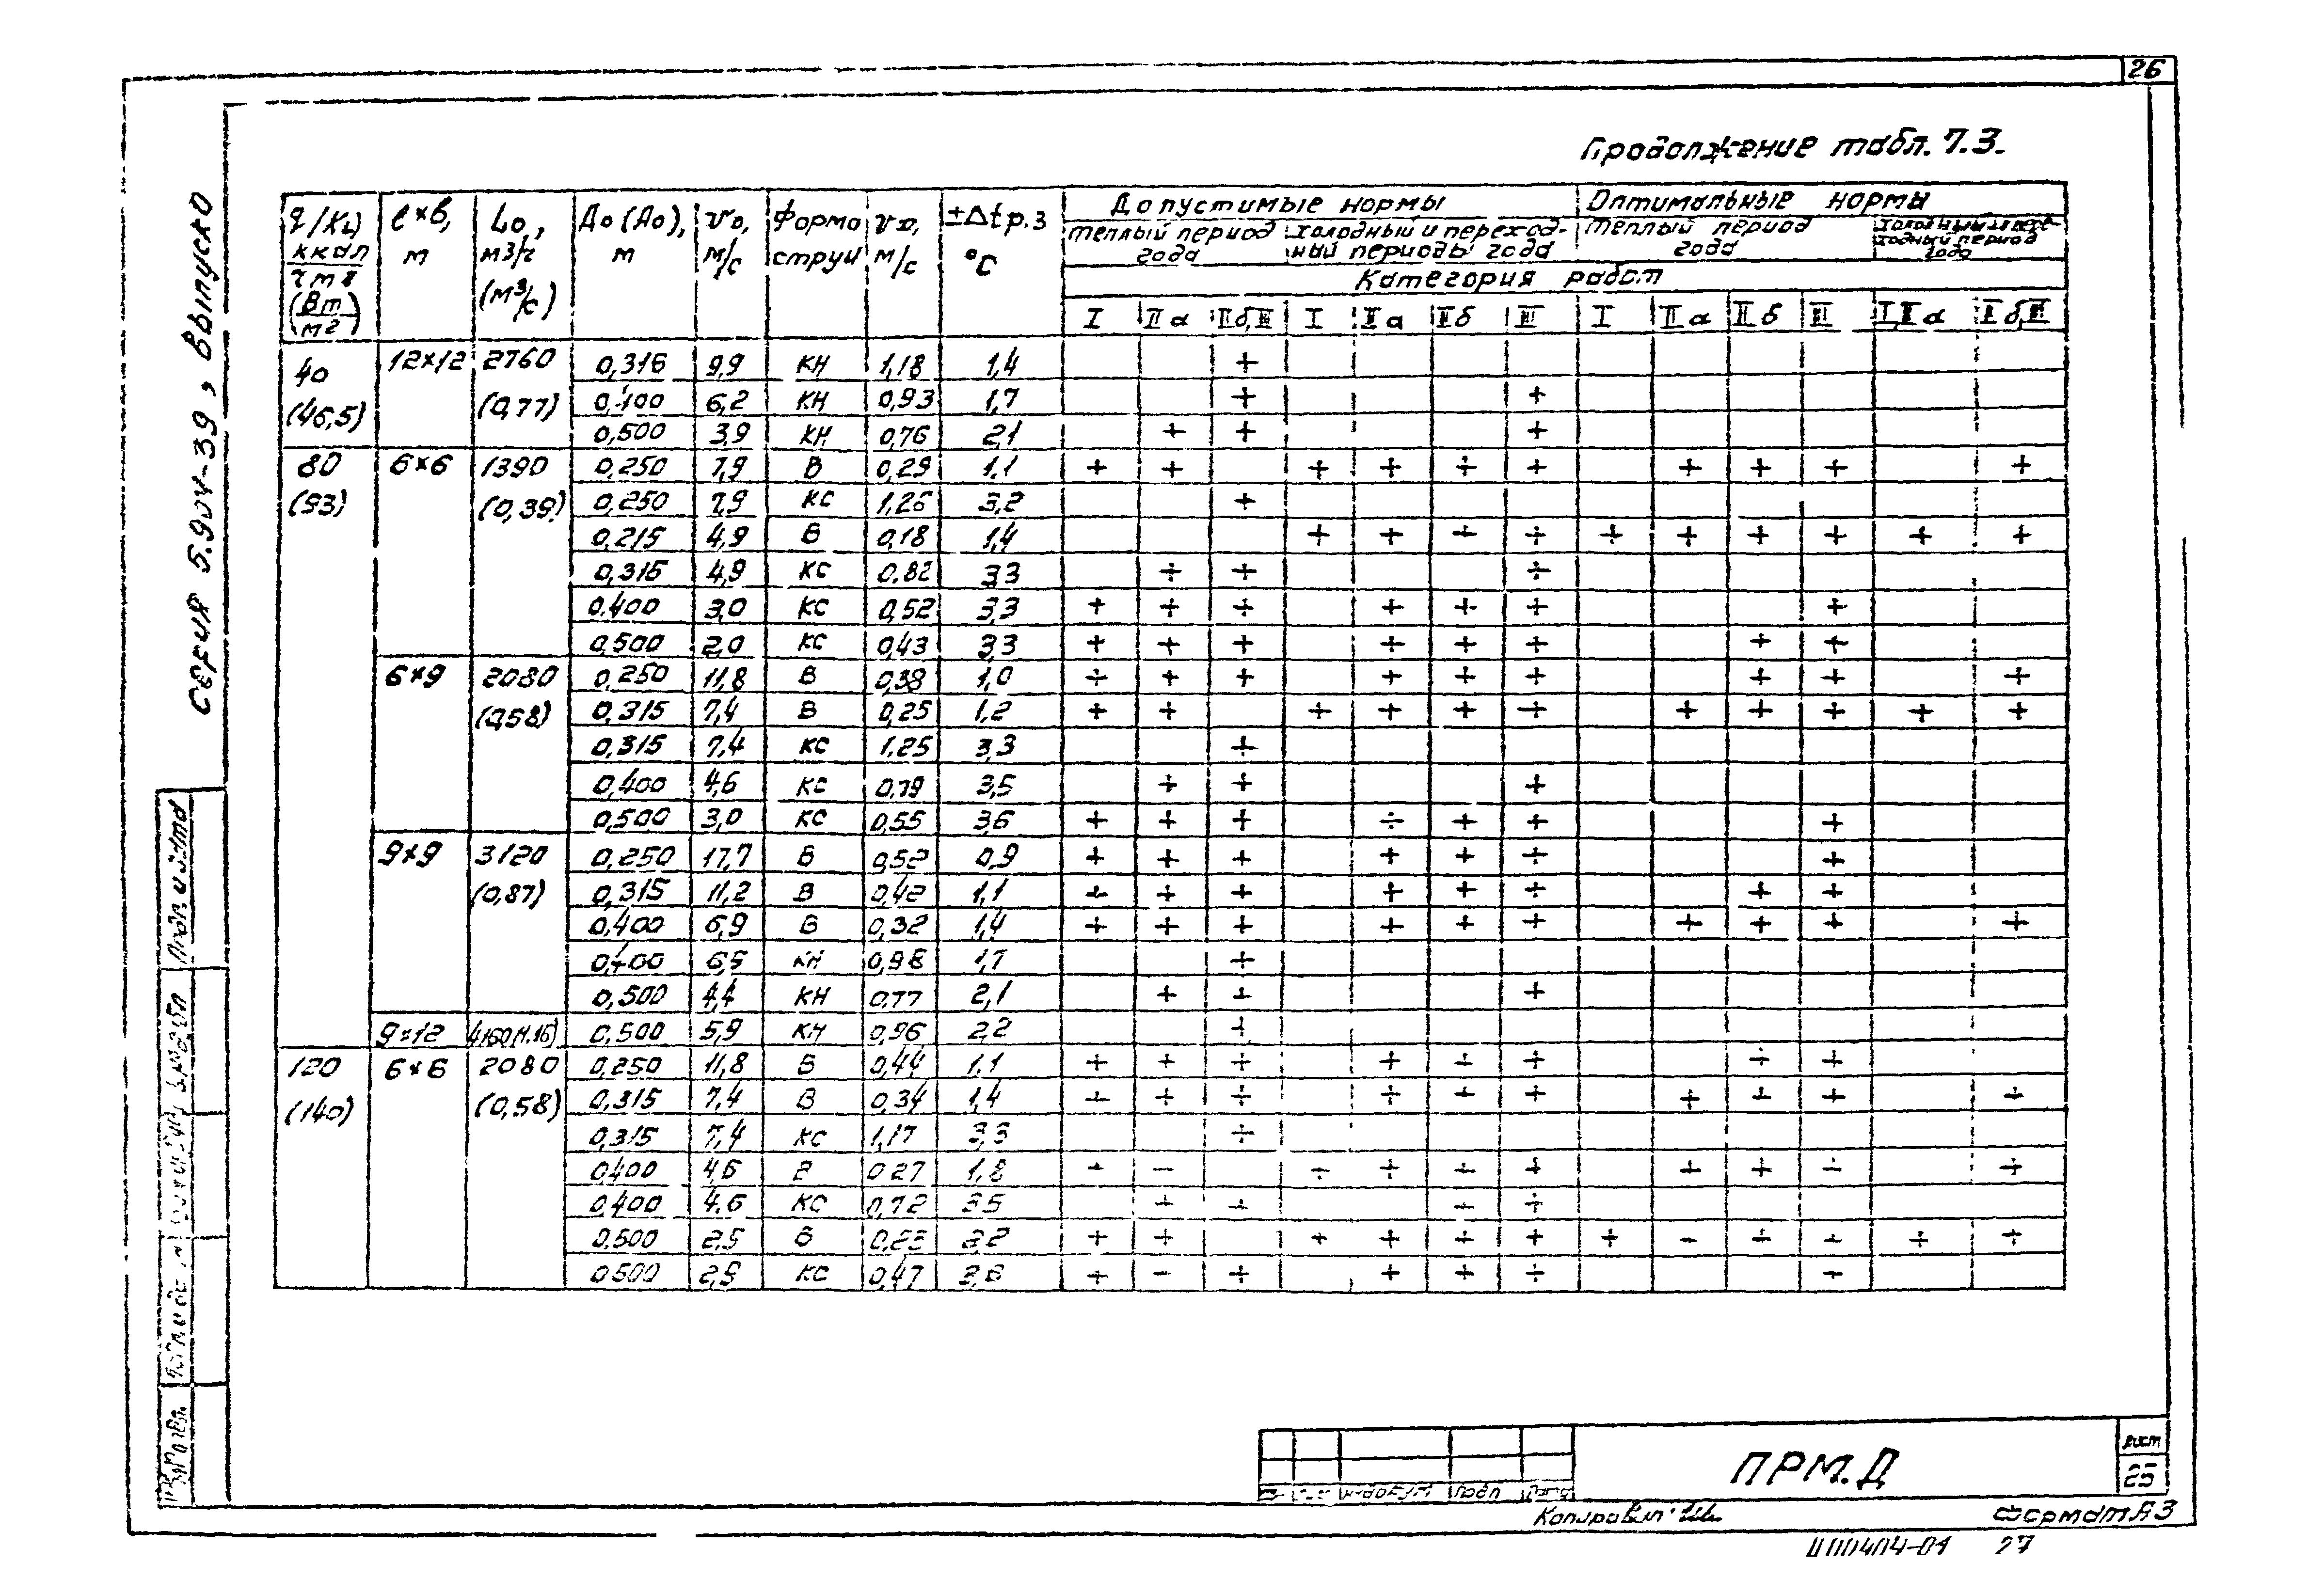 26
Продолжение табл. 7.3.
Серия 5.904-39, выпуск 0
q/Kl, ккал/ч м² (Вт/м²) | ℓ×в, м | Lo, м3/ч (м³/с) | До (Ао), м | vо, м/с | Форма струи | vх, м/с | ±Δtр.з °С | Допустимые нормы | Оптимальные нормы
теплый период года | холодный и переходный периоды года | теплый период года | холодный и переходный период года
Категория работ
I | IIа | IIб,III | I | IIа | IIб | III | I | IIа | IIб | III | I,IIа | IIб,III
40 (46,5) | 12×12 | 2760 (0,77) | 0,316 | 9,9 | КН | 1,18 | 1,4 | | | + | | | | | | | | | |
0,400 | 6,2 | КН | 0,93 | 1,7 | | | + | | | | + | | | | | |
0,500 | 3,9 | КН | 0,76 | 2,1 | | + | + | | | | + | | | | | |
80 (93) | 6×6 | 1390 (0,39) | 0,250 | 7,9 | В | 0,29 | 1,1 | + | + | | + | + | + | + | | + | + | + | | +
0,250 | 7,9 | КС | 1,26 | 3,2 | | | + | | | | | | | | | |
0,215 | 4,9 | В | 0,18 | 1,4 | | | | + | + | + | + | + | + | + | + | + | +
0,315 | 4,9 | КС | 0,82 | 3,3 | | + | + | | | | + | | | | | |
0,400 | 3,0 | КС | 0,52 | 3,3 | + | + | + | | + | + | + | | | | + | |
0,500 | 2,0 | КС | 0,43 | 3,3 | + | + | + | | + | + | + | | | + | + | |
6×9 | 2080 (0,58) | 0,250 | 11,8 | В | 0,38 | 1,0 | + | + | + | | + | + | + | | | + | + | | +
0,315 | 7,4 | В | 0,25 | 1,2 | + | + | | + | + | + | + | | + | + | + | + | +
0,315 | 7,4 | КС | 1,25 | 3,3 | | | + | | | | | | | | | |
0,400 | 4,6 | КС | 0,79 | 3,5 | | + | + | | | | + | | | | | |
0,500 | 3,0 | КС | 0,55 | 3,6 | + | + | + | | + | + | + | | | | + | |
9×9 | 3120 (0,87) | 0,250 | 17,7 | В | 0,52 | 0,9 | + | + | + | | + | + | + | | | | + | |
0,315 | 11,2 | В | 0,42 | 1,1 | + | + | + | | + | + | + | | | + | + | |
0,400 | 6,9 | В | 0,32 | 1,4 | + | + | + | | + | + | + | | + | + | + | | +
0,400 | 6,9 | КН | 0,98 | 1,7 | | | + | | | | | | | | | |
0,500 | 4,4 | КН | 0,77 | 2,1 | | + | + | | | | + | | | | | |
9×12 | 4160 (1,16) | 0,500 | 5,9 | КН | 0,96 | 2,2 | | | + | | | | | | | | | |
120 (140) | 6×6 | 2080 (0,58) | 0,250 | 11,8 | В | 0,44 | 1,1 | + | + | + | | + | + | + | | | + | + | |
0,315 | 7,4 | В | 0,34 | 1,4 | + | + | + | | + | + | + | | + | + | + | | +
0,315 | 7,4 | КС | 1,17 | 3,3 | | | + | | | | | | | | | |
0,400 | 4,6 | В | 0,27 | 1,8 | + | + | | + | + | + | + | | + | + | + | | +
0,400 | 4,6 | КС | 0,72 | 3,5 | | + | + | | | + | + | | | | | |
0,500 | 2,9 | В | 0,23 | 2,2 | + | + | | + | + | + | + | + | + | + | + | + | +
0,500 | 2,9 | КС | 0,47 | 3,6 | + | + | + | | + | + | + | | | | + | |
Подп. и дата
ПРМ.Д
Лист
25
Копировал
Формат А3
Ц00404-01 27